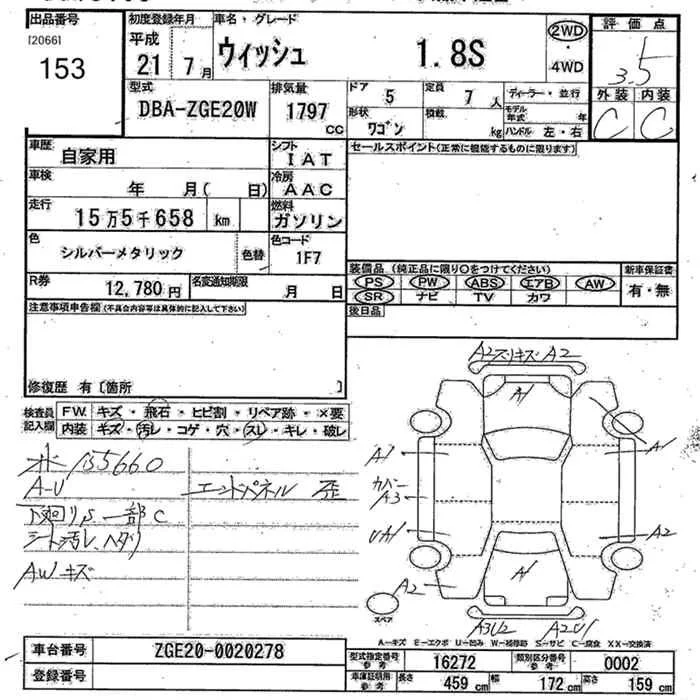 出品番号
[2066]
153
初度登録年月
平成
21年 7月
車名・グレード
ウィッシュ 1.8S
2WD
・4WD
評価点
3.5
外装 内装
C C
型式
DBA-ZGE20W
排気量
1797 cc
ドア
5
定員
7人
形状
ワゴン
積載
kg
ディーラー・並行
モデル年式 年
ハンドル 左・右
車歴
自家用
シフト
IAT
車検
年 月( 日)
冷房
AAC
走行
15万5千658 km
燃料
ガソリン
色
シルバーメタリック
色替
色コード
1F7
R券
12,780円
名変通知期限
月 日
セールスポイント(正常に機能するものに限ります)
装備品 (純正品に限り○をつけてください)
PS PW ABS エアB AW
SR ナビ TV カワ
新車保証書
有・無
後日品
注意事項申告欄(不具合内容等は具体的に記入して下さい)
修復歴 有〔箇所 〕
検査員記入欄
FW. キズ・飛石・ヒビ割・リペア跡・×要
内装 キズ・汚レ・コゲ・穴・スレ・キレ・破レ
メ 155660
A-U
エンドパネル 歪
下廻りS 一部C
シート汚レ、ヘタリ
AWキズ
A2スリキズ A2
A1
A1
A1
カバー
A3
UA1
A2
A1
A2
A3U2 A2U1
スペア
A-キズ E-エクボ U-凹み W-補修跡 S-サビ C-腐食 XX-交換済
車台番号
ZGE20-0020278
登録番号
型式指定番号 参考
16272
類別区分番号 参考
0002
車庫証明用 参考
長さ 459cm 幅 172cm 高さ 159cm